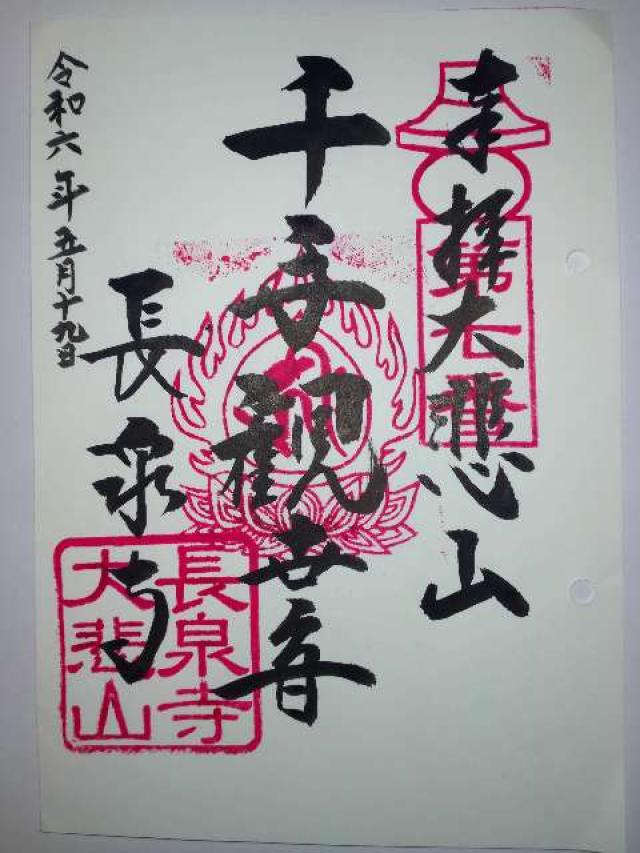 奉拝大悲山
千手観世音
長泉寺
令和六年五月十九日
長泉寺
大悲山